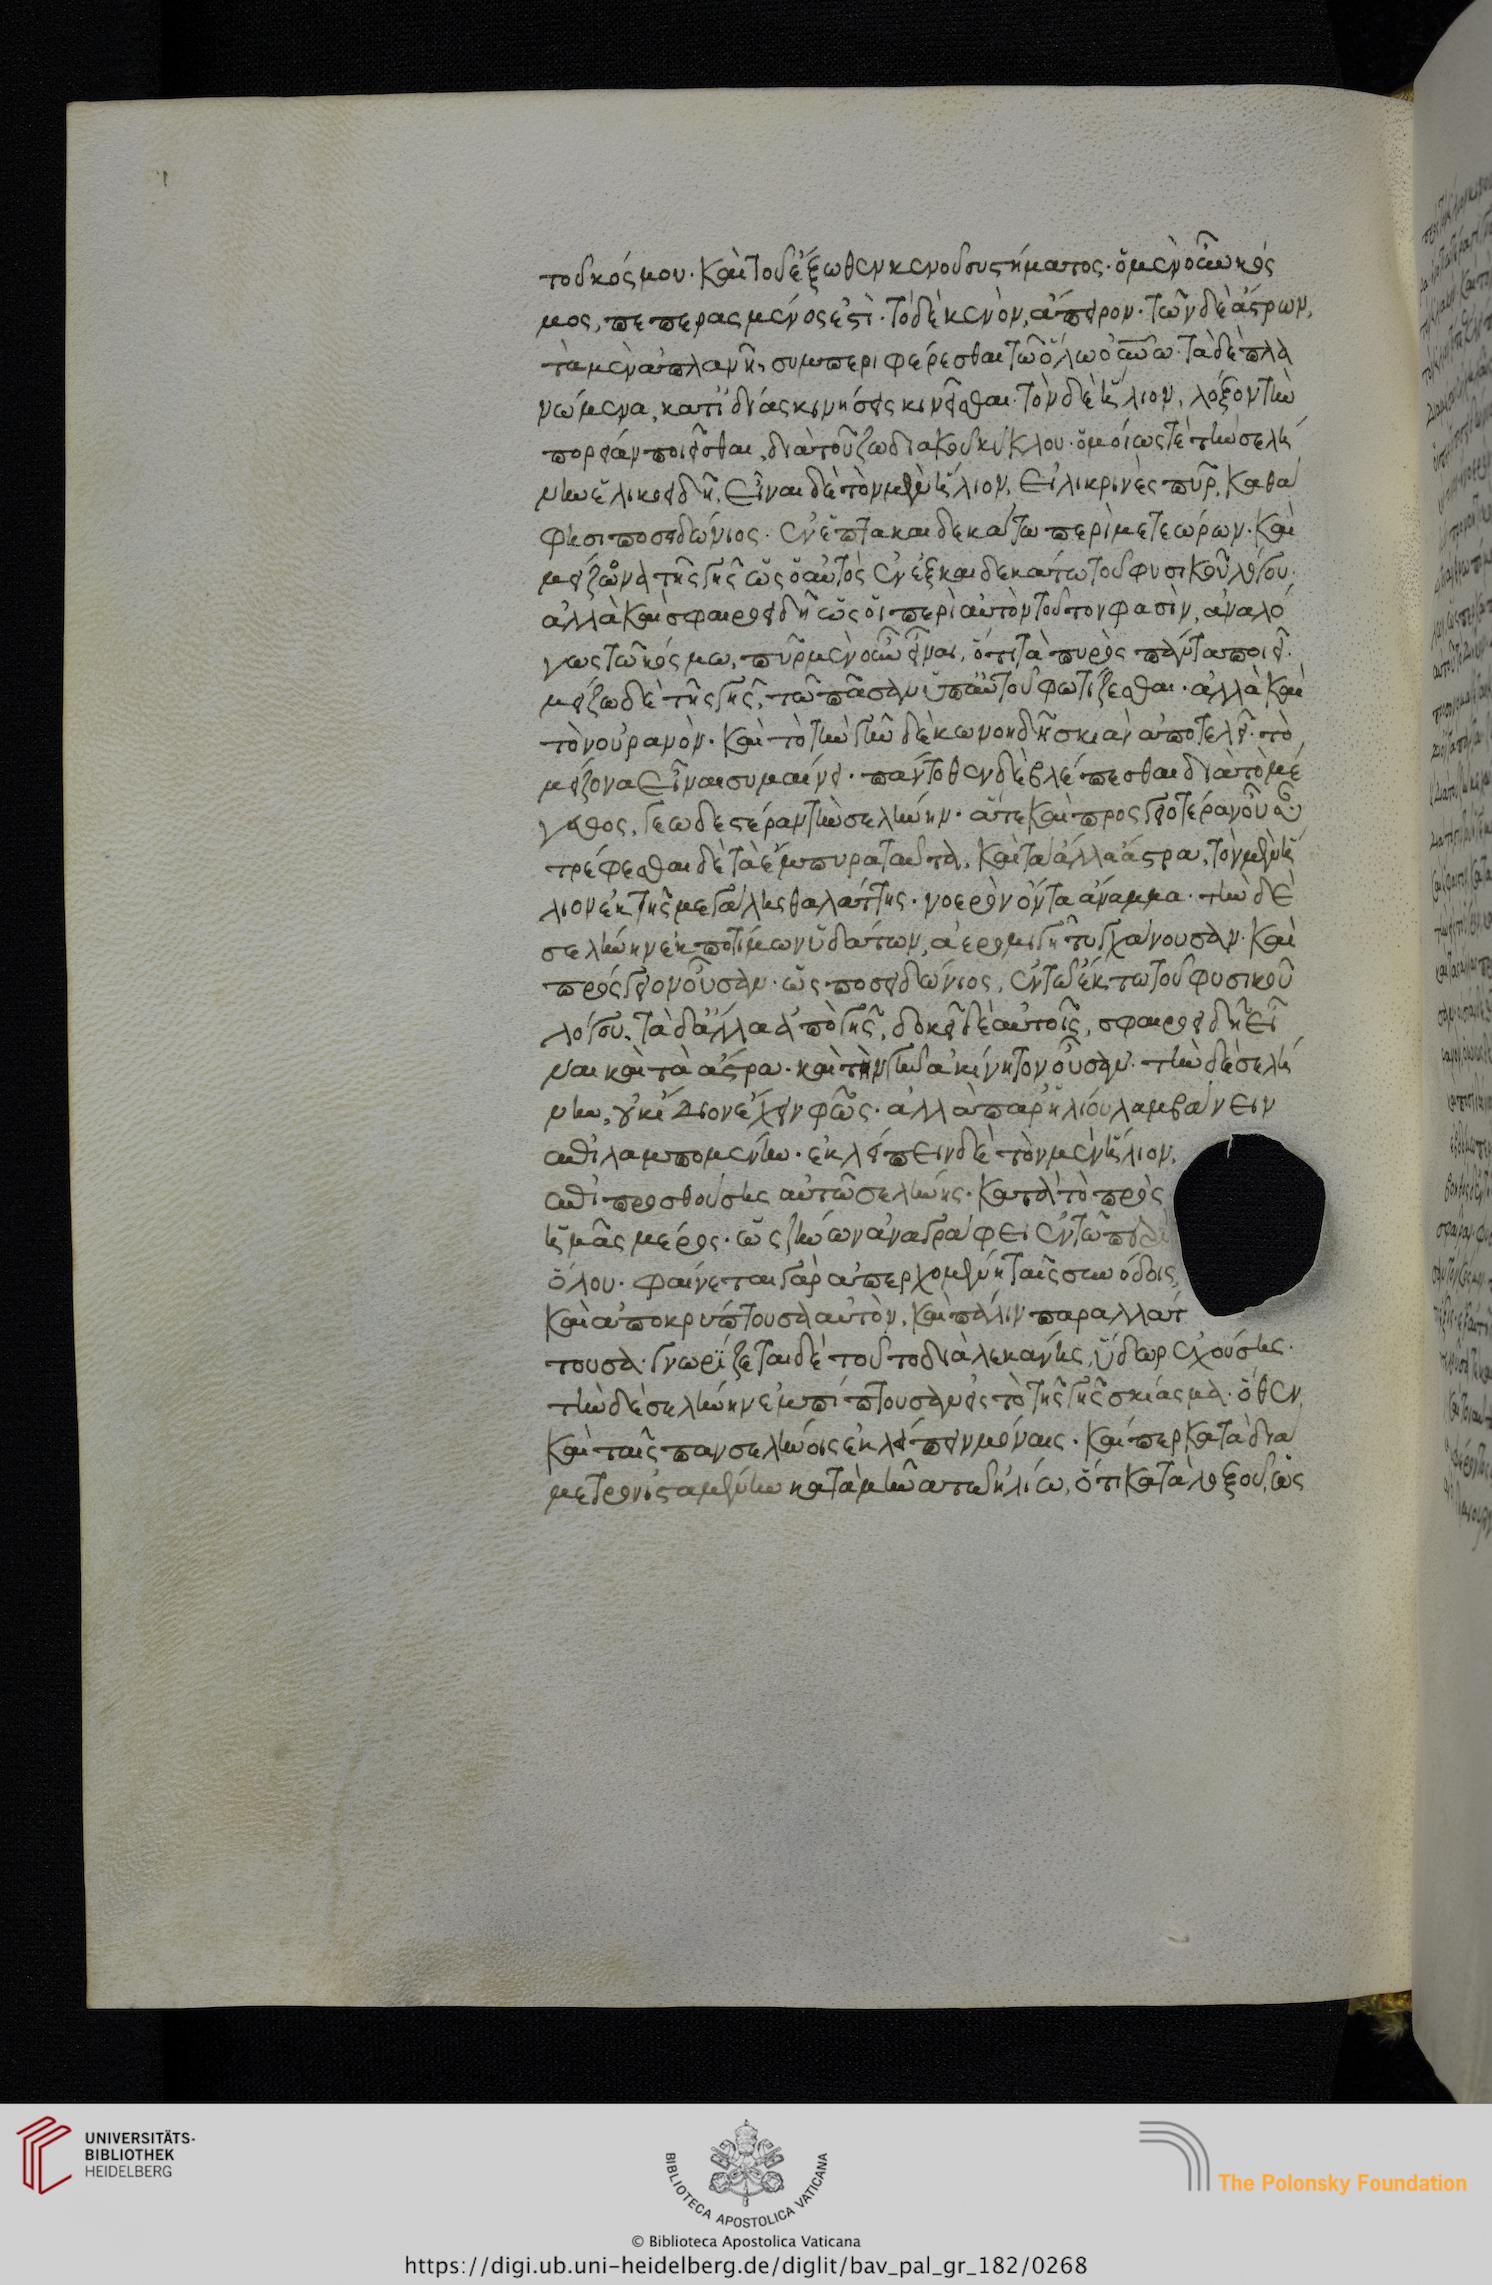 τοῦ κόσμου· καὶ τοῦ ἔξωθεν κενοῦ συστήματος· ὁ μὲν οὖν κός
μος, πεπερασμένος ἐστὶ· τὸ δὲ κενὸν, ἄπειρον· τῶν δὲ ἄστρων,
τὰ μὲν ἀπλανῆ, συμπεριφέρεσθαι τῶ ὅλω οὐνω· τὰ δὲ πλα
νώμενα, κατ' ἰδίας κινήσεις κινεῖσθαι· τὸν δὲ ἥλιον, λόξον τὴν
πορείαν ποιεῖσθαι, διὰ τοῦ ζωδιακοῦ κύκλου· ὁμοίως τὲ τὴν σελή
νην ἑλικοειδῆ, εἶναι δὲ τὸν μὲν ἥλιον, εἰλικρινὲς πῦρ, καθά
φησι ποσειδώνιος· ἐν ἑπτακαιδεκάτω περὶ μετεώρων· καὶ
μείζονα τῆς γῆς ὡς ὁ αὐτὸς ἐν ἑξκαιδεκάτω τοῦ φυσικοῦ λόγου·
ἀλλὰ καὶ σφαιροειδῆ ὡς οἱ περὶ αὐτὸν τοῦτον φασὶν, ἀναλό
γως τῶ κόσμω, πῦρ μὲν οὖν εἶναι, ὅτι τὰ πυρὸς πάντα ποιεῖ·
μείζω δὲ τῆς γῆς, τῶ πᾶσαν ὑπ' αὐτοῦ φωτίζεσθαι· ἀλλὰ καὶ
τὸν οὐρανὸν· καὶ τὸ τὴν γῆν δὲ κωνοηδῆ σκιὰν ἀποτελεῖ· τὸ
μείζονα εἶναι συμαίνει· πάντοθεν δὲ βλέπεσθαι διὰ τὸ μέ
γεθος, γεωδεστέραν τὴν σελήνην· ἅτε καὶ προσγειοτέραν οὖσαν
τρέφεσθαι δὲ τὰ ἔμπυρα ταῦτα, καὶ τὰ ἄλλα ἄστρα, τὸν μὲν ἥ
λιον ἐκ τῆς μεγάλης θαλάττης· νοερὸν ὄντα ἄναμμα· τὴν δὲ
σελήνην ἐκ ποτίμων ὑδάτων, ἀερομιγῆ τυγχάνουσαν· καὶ
πρόσγειον οὖσαν· ὡς ποσειδώνιος, ἐν τῶ ἕκτω τοῦ φυσικοῦ
λόγου, τὰ δ' ἄλλα ἀπὸ γῆς, δοκεῖ δὲ αὐτοῖς, σφαιροειδῆ εἶ
ναι καὶ τὰ ἄστρα· καὶ τὴν γῆν ἀκίνητον οὖσαν· τὴν δὲ σελή
νην, οὐκ ἴδιον ἔχειν φῶς· ἀλλὰ παρ' ἡλίου λαμβάνειν
ἐπιλαμπομένην· ἐκλείπειν δὲ τὸν μὲν ἥλιον,
ἐπιπροσθούσης αὐτῶ σελήνης· κατὰ τὸ πρὸς
ἡμᾶς μέρος· ὡς ζήνων ἀναγράφει ἐν τῶ περὶ
ὅλου· φαίνεται γὰρ ἀπερχομένη ταῖς συνόδοις,
καὶ ἀποκρύπτουσα αὐτὸν, καὶ πάλιν παραλλάτ
τουσα· γνωρίζεται δὲ τοῦτο διὰ λεκανίης, ὕδωρ ἐχούσης·
τὴν δὲ σελήνην ἐμπίπτουσαν εἰς τὸ τῆς γῆς σκίασμα· ὅθεν,
καὶ ταῖς πανσελήνοις ἐκλείπειν μόναις· καίπερ κατὰ διά
μετρον ἱσταμένην κατὰ μῆνα τῶ ἡλίω, ὅτι κατὰ λοξοῦ, ὡς